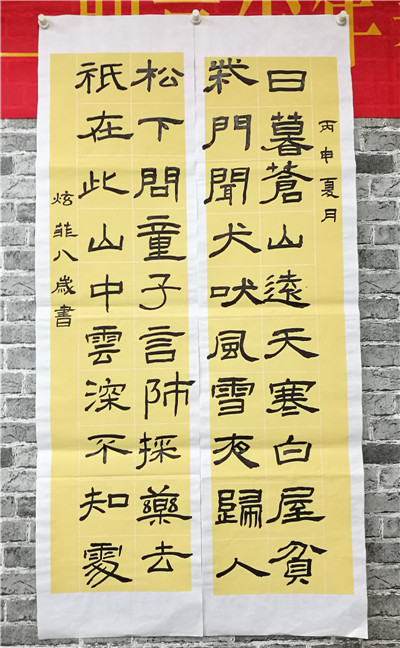 丙申夏月
日暮蒼山遠天寒白屋貧
柴門聞犬吠風雪夜歸人
松下問童子言師採藥去
祇在此山中雲深不知處
炫菲八歲書